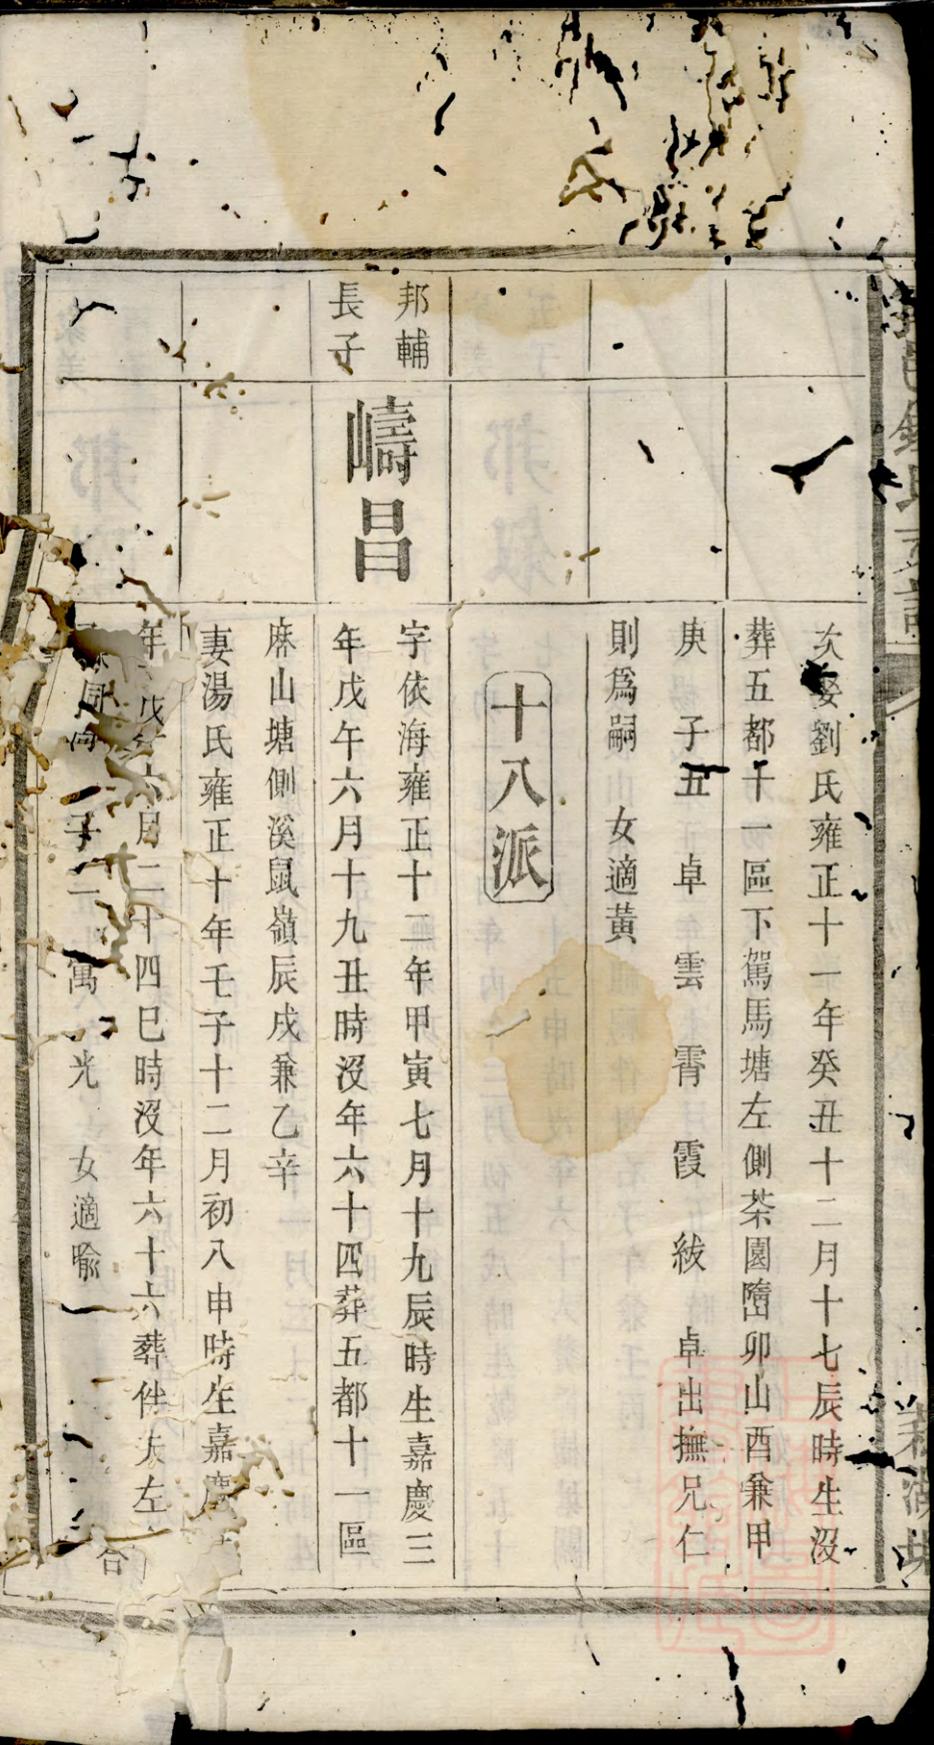 次娶劉氏雍正十一年癸丑十二月十七辰時生沒
葬五都十一區下駕馬塘左側茶園嶞卯山酉兼甲
庚 子五 卓 雲 霄 霞 紱 卓出撫兄仁
則爲嗣 女適黃
十八派
邦輔
長子
嶹昌
字依海雍正十二年甲寅七月十九辰時生嘉慶三
年戊午六月十九丑時沒年六十四葬五都十一區
麻山塘側溪鼠嶺辰戌兼乙辛
妻湯氏雍正十年壬子十二月初八申時生嘉慶
年 戊 月二十四巳時沒年六十六葬伴夫左
子二 萬 光 女適喻
合